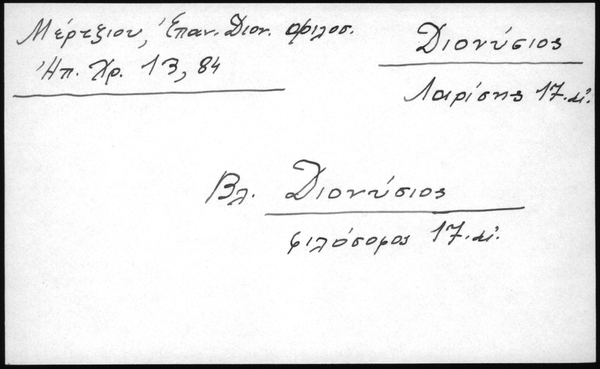 Μέρτζιου, Ἐπαν. Διον. φιλοσ.
Ἠπ. Χρ. 13, 84
Διονύσιος
Λαρίσης 17. αἰ.
Βλ. Διονύσιος
φιλόσοφος 17. αἰ.